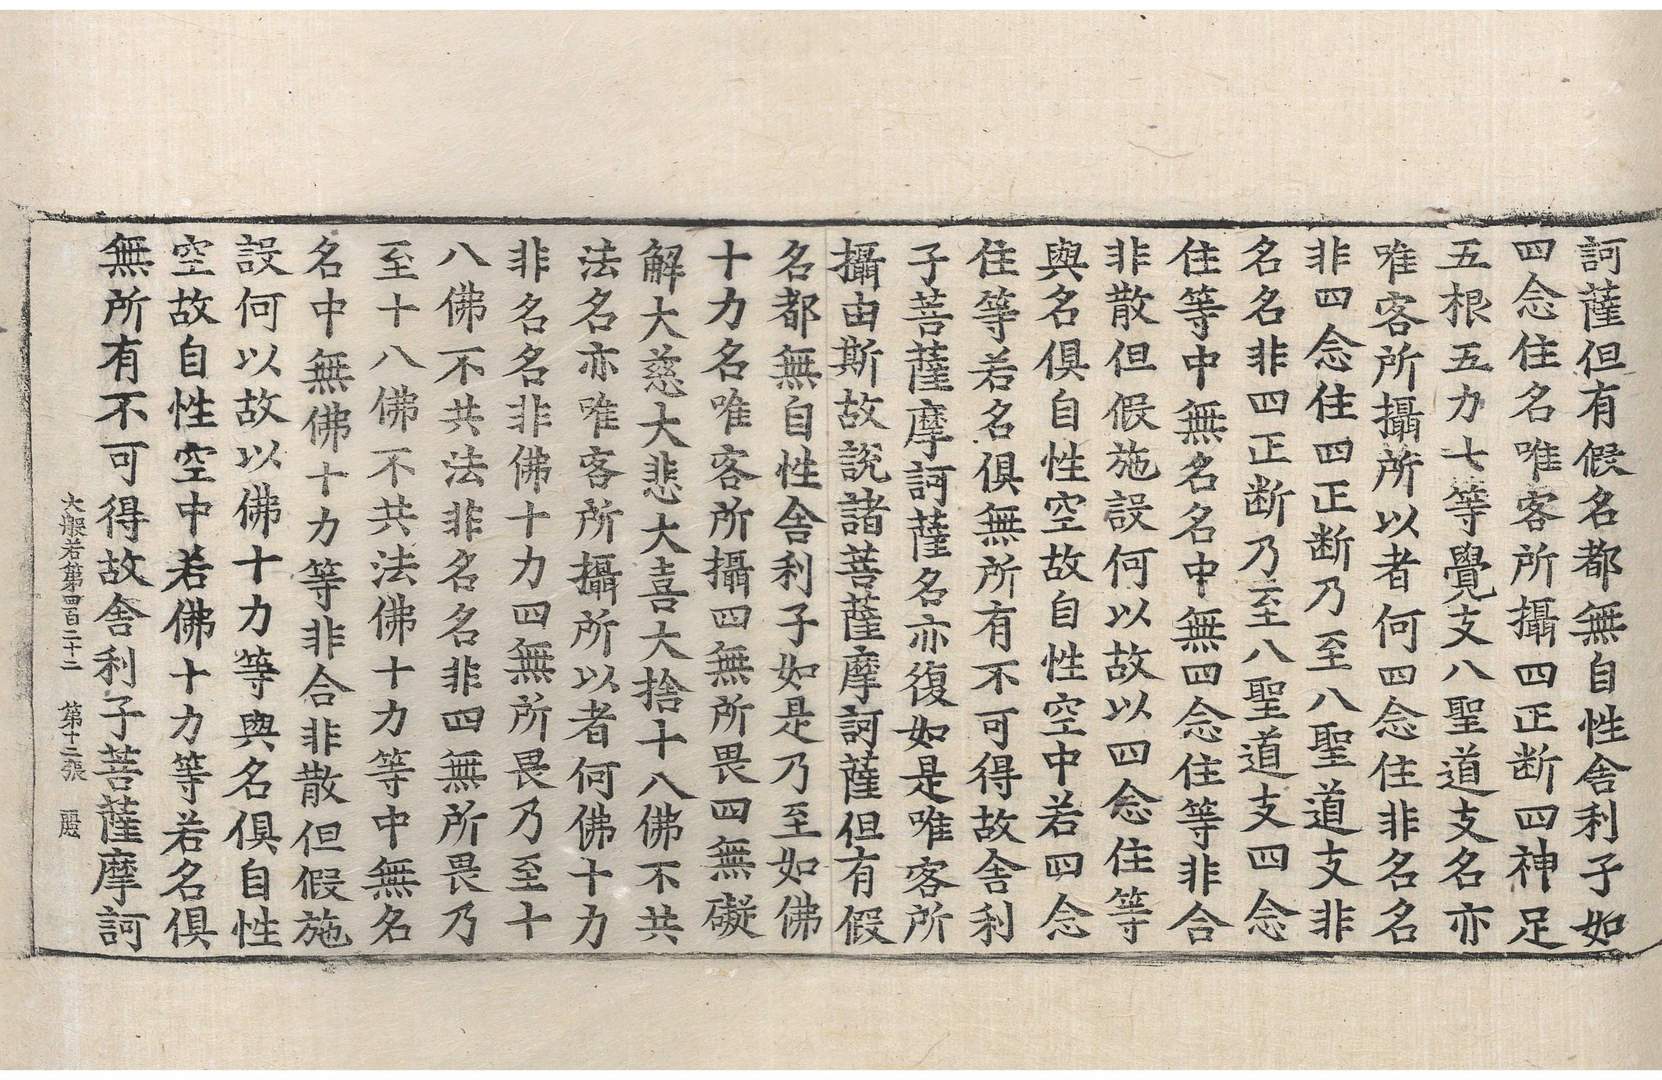 訶薩但有假名都無自性舍利子如
四念住名唯客所攝四正断四神足
五根五力七等覺支八聖道支名亦
唯客所攝所以者何四念住非名名
非四念住四正断乃至八聖道支非
名名非四正断乃至八聖道支四念
住等中無名名中無四念住等非合
非散但假施設何以故以四念住等
與名俱自性空故自性空中若四念
住等若名俱無所有不可得故舍利
子菩薩摩訶薩名亦復如是唯客所
攝由斯故說諸菩薩摩訶薩但有假
名都無自性舍利子如是乃至如佛
十力名唯客所攝四無所畏四無礙
解大慈大悲大喜大捨十八佛不共
法名亦唯客所攝所以者何佛十力
非名名非佛十力四無所畏乃至十
八佛不共法非名名非四無所畏乃
至十八佛不共法佛十力等中無名
名中無佛十力等非合非散但假施
設何以故以佛十力等與名俱自性
空故自性空中若佛十力等若名俱
無所有不可得故舍利子菩薩摩訶
大般若第四百二十二　第十二張　麗